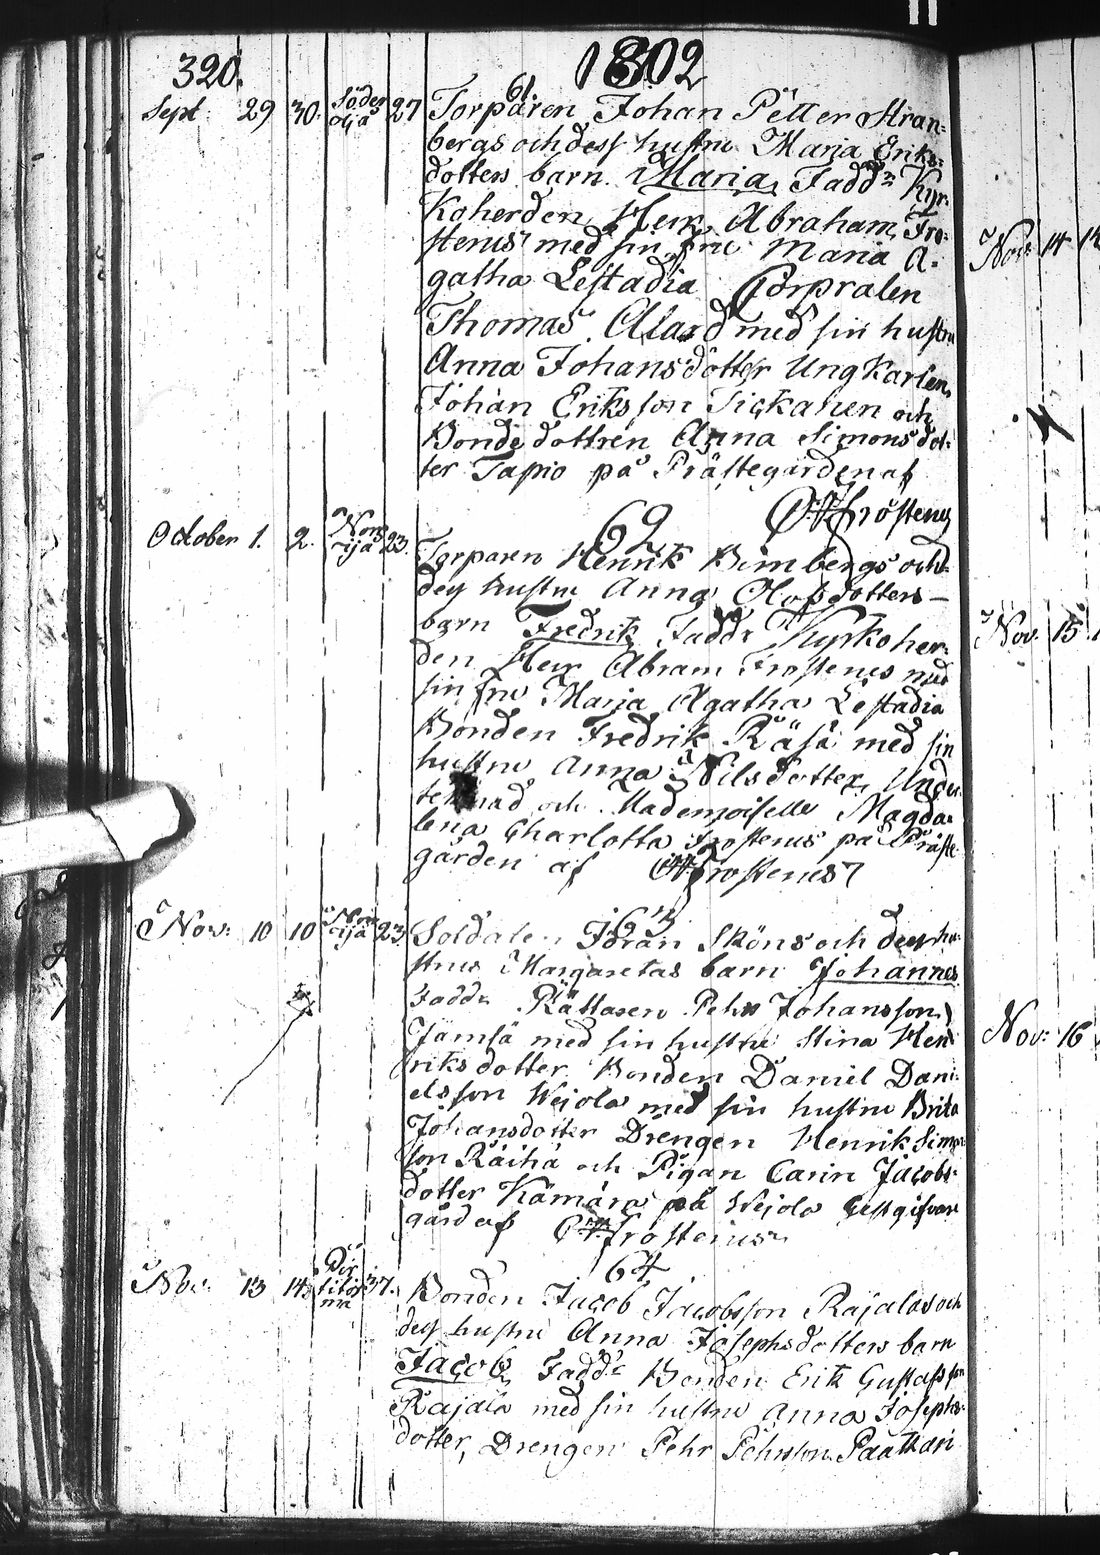 320.
1802
61.
Sept 29 30. Söder
oija 27 Torparen Johan Petter Stran-
bergs och dess hustru Maria Eriks-
dotters barn Maria, Fadd:r Kyr-
koherden Herr Abraham Fro-
stenus med sin fru Maria A-
gatha Lestadia Corpralen
Thomas Alard med sin hustru
Anna Johansdotter Ungkarlen
Johan Eriksson Tickanen och
Bonde dottren Anna Simonsdot-
ter Tapio på Prästegården af
Frostenus
62
October 1. 2. Norr
oija 23. Torparn Henrik Bimbergs och
dess hustru Anna Olofsdotters
barn Fredrik Fadd:r Kyrkoher-
den Herr Abram Frostenus med
sin fru Maria Agatha Lestadia
Bonden Fredrik Räsä med sin
hustru Anna Nilsdotter, Under-
teknad och Mademoiselle Magda-
lena Charlotta Frostenus på Präste-
gården af Frostenus
63
Nov: 10 10 23. Soldaten Jöran Sköns och dess hu-
strus Margaretas barn Johannes
Fadd:r Rättaren Pehr Johansson
Jämsä med sin hustru Stina Hen-
riksdotter Bonden Daniel Dani-
elsson Wejola med sin hustru Brita
Johansdotter Drengen Henrik Simons-
son Räihä och Pigan Carin Jacobs-
dotter Kämärä på Wejola Gestgifvare
gård af Frostenus
64
Nov: 13 14. 37. Bonden Jacob Jacobsson Rajalas och
dess hustru Anna Josephsdotters barn
Jacob, Fadd:r Bonden Erik Gustafsson
Rajala med sin hustru Anna Josephs-
dotter, Drengen Pehr Pehrsson Paathari
Nov: 14
Nov. 15
Nov: 16